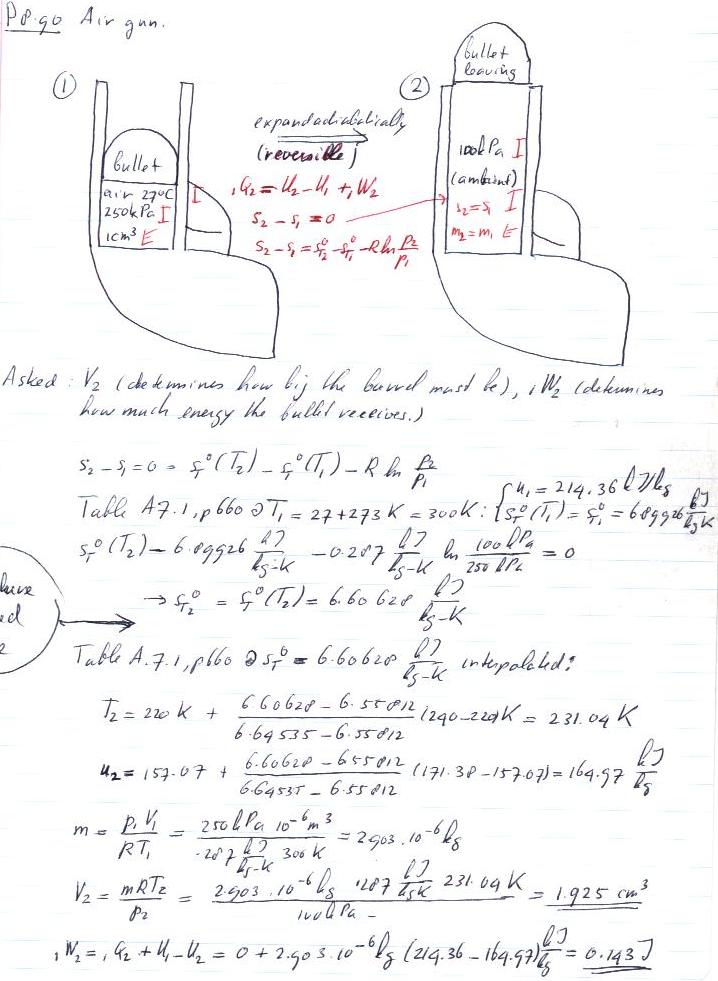 P8.90 Air gun.
① ②
bullet
leaving
bullet
air 27°C I
250kPa I
1cm³ E
expand adiabatically
(reversible)
₁Q₂ = U₂ - U₁ + ₁W₂
s₂ - s₁ = 0
s₂ - s₁ = s°T2 - s°T1 - R ln P₂/P₁
100kPa I
(ambient)
s₂ = s₁ I
m₂ = m₁ E
Asked : V₂ (determines how big the barrel must be), ₁W₂ (determines
how much energy the bullet receives.)
s₂ - s₁ = 0 = s°T(T₂) - s°T(T₁) - R ln P₂/P₁
Table A7.1, p660 @ T₁ = 27+273 K = 300K : { u₁ = 214.36 kJ/kg
s°T(T₁) = s°T1 = 6.89926 kJ/kg K
s°T(T₂) - 6.89926 kJ/kg-K - 0.287 kJ/kg-K ln 100kPa/250kPa = 0
→ s°T2 = s°T(T₂) = 6.60628 kJ/kg-K
Table A.7.1, p660 @ s°T = 6.60628 kJ/kg-K interpolated:
T₂ = 220 K + (6.60628 - 6.55812)/(6.64535 - 6.55812) (240-220)K = 231.04 K
u₂ = 157.07 + (6.60628 - 6.55812)/(6.64535 - 6.55812) (171.38 - 157.07) = 164.97 kJ/kg
m = P₁V₁/RT₁ = 250kPa 10⁻⁶m³/.287 kJ/kg-K 300K = 2.903 . 10⁻⁶ kg
V₂ = mRT₂/P₂ = 2.903 . 10⁻⁶ kg .287 kJ/kgK 231.04 K/100kPa = 1.925 cm³
₁W₂ = ₁Q₂ + U₁ - U₂ = 0 + 2.903 . 10⁻⁶ kg (214.36 - 164.97) kJ/kg = 0.143 J